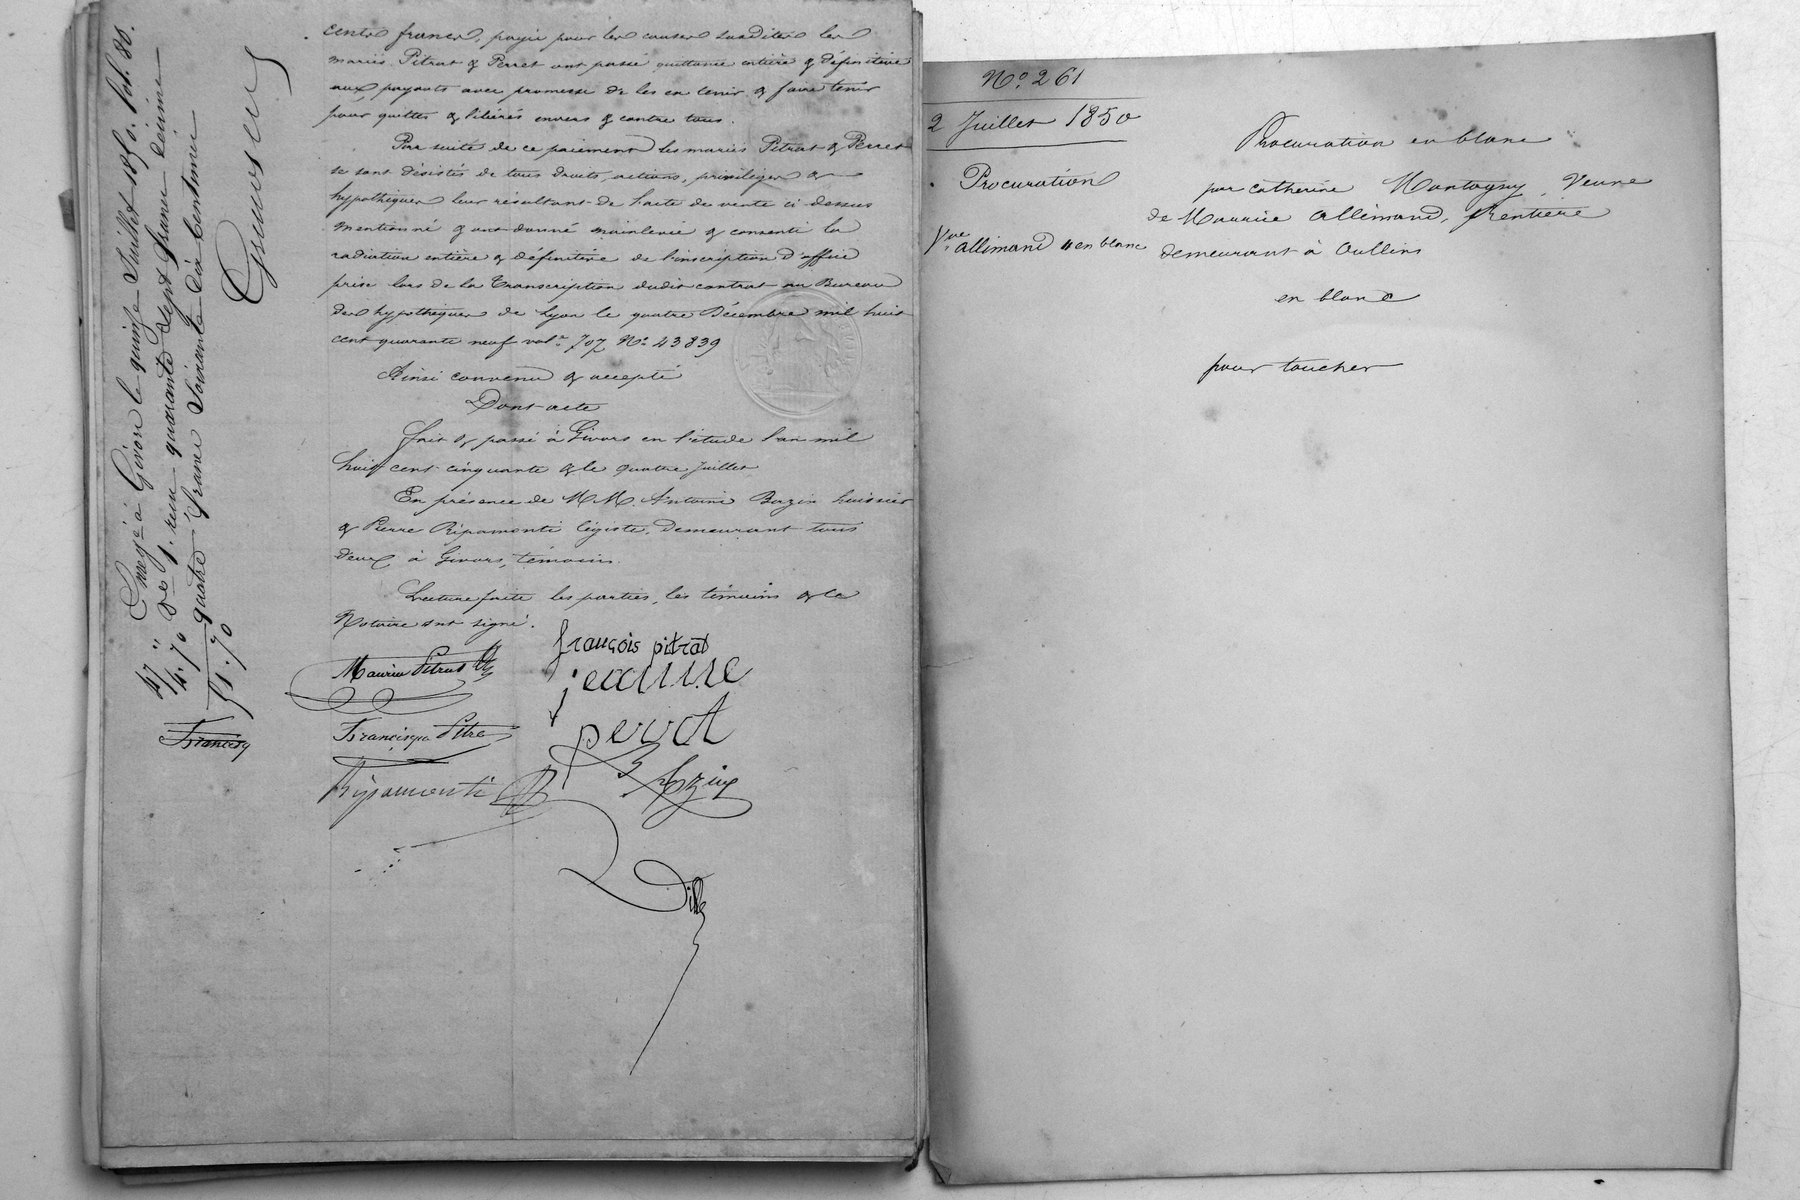 cents francs, payée pour les causes susdites les
mariés Pitrat & Perret ont passé quittance entière & définitive
aux payants avec promesse de les en tenir & faire tenir
pour quittes & libérés envers & contre tous.
Par suite de ce paiement les mariés Pitrat & Perret
se sont désistés de tous droits, actions, privilèges &
hypothèques leur résultant de l'acte de vente ci dessus
mentionné & ont donné mainlevée & consenti la
radiation entière & définitive de l'inscription d'office
prise lors de la Transcription dudit contrat au Bureau
des hypothèques de Lyon le quatre Décembre mil huit
cent quarante neuf vol. 707 No. 43839
Ainsi convenu & accepté
Dont acte
fait & passé à Givors en l'étude l'an mil
huit cent cinquante & le quatre Juillet
En présence de M.M. Antoine Bazin huissier
& Pierre Ripamonti légiste, demeurant tous
deux à Givors, témoins.
Lecture faite les parties, les témoins & le
Notaire ont signé.
Maurice Pitrat
françois pitrat
jeanne
Francisque Pitra
perot
Ripamonti
Bazin
Enregé à Givors le quinze Juillet 1850. fol. 88.
reçu quarante sept francs décime
quatre francs soixante dix centimes
47 "
4.70
51.70
No. 261
2 Juillet 1850
Procuration
Vve allimand en blanc
Procuration en blanc
par catherine Montagny, Veuve
de Maurice allimand, Rentière
demeurant à Oullins
en blanc
pour toucher